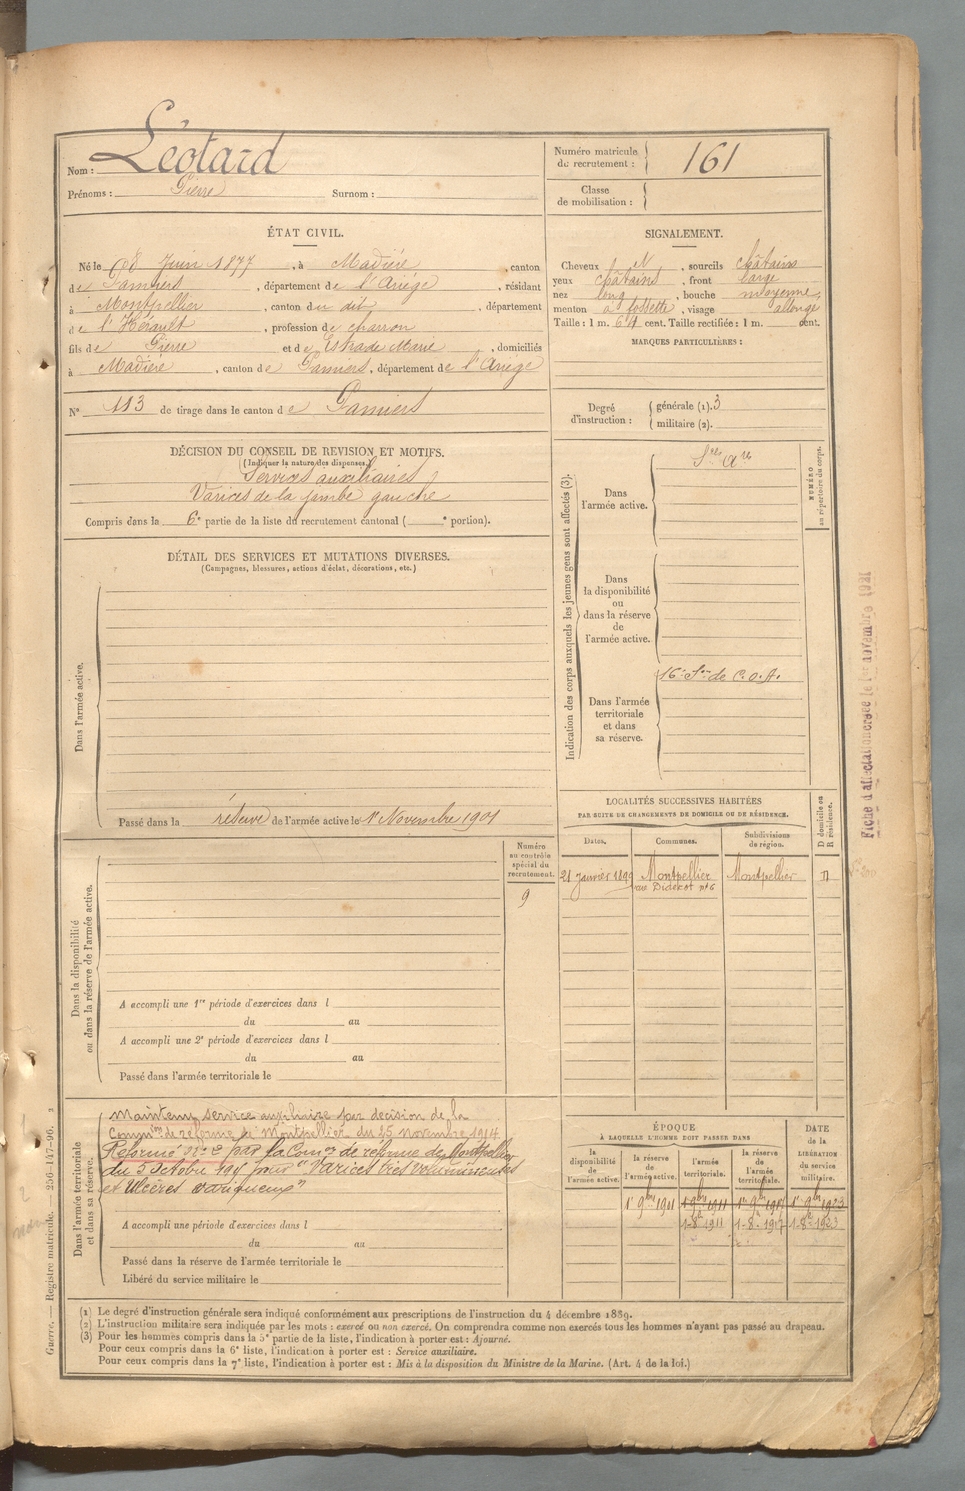 Nom : Léotard
Prénoms : Pierre Surnom :
Numéro matricule de recrutement : 161
Classe de mobilisation :
ÉTAT CIVIL.
Né le 8 Juin 1877, à Madière, canton
de Pamiers, département de l'Ariège, résidant
à Montpellier, canton du dit, département
de l'Hérault, profession de charron
fils de Pierre et de Estrade Marie, domiciliés
à Madière, canton de Pamiers, département de l'Ariège
N° 113 de tirage dans le canton de Pamiers
SIGNALEMENT.
Cheveux , sourcils châtains
yeux châtains, front large
nez long, bouche moyenne,
menton à fossette, visage allongé
Taille : 1 m. 64 cent. Taille rectifiée : 1 m. cent.
MARQUES PARTICULIÈRES :
Degré d'instruction : générale (1). 3
militaire (2).
DÉCISION DU CONSEIL DE REVISION ET MOTIFS.
(Indiquer la nature des dispenses.)
Services auxiliaires
Varices de la jambe gauche
Compris dans la 6e partie de la liste du recrutement cantonal ( e portion).
DÉTAIL DES SERVICES ET MUTATIONS DIVERSES.
(Campagnes, blessures, actions d'éclat, décorations, etc.)
Dans l'armée active.
Passé dans la réserve de l'armée active le 1er Novembre 1901
Indication des corps auxquels les jeunes gens sont affectés (3).
NUMÉRO au répertoire du corps.
Dans l'armée active.
Dans la disponibilité ou dans la réserve de l'armée active.
Dans l'armée territoriale et dans sa réserve.
16e Son de C.O.A.
Fiche d'affectation créée le 1er novembre 1921
LOCALITÉS SUCCESSIVES HABITÉES
PAR SUITE DE CHANGEMENTS DE DOMICILE OU DE RÉSIDENCE.
D domicile ou R résidence.
Dates. Communes. Subdivisions de région.
21 janvier 1899 Montpellier Montpellier
rue Diderot n° 6
Numéro au contrôle spécial du recrutement.
9
Dans la disponibilité ou dans la réserve de l'armée active.
A accompli une 1re période d'exercices dans l
du au
A accompli une 2e période d'exercices dans l
du au
Passé dans l'armée territoriale le
Dans l'armée territoriale et dans sa réserve.
Maintenu service auxiliaire par décision de la
Commion de réforme de Montpellier du 25 novembre 1914
Réformé par la Comon de réforme de Montpellier
du 5 Octobre pour "Varices très volumineuses
et Ulcères variqueux"
A accompli une période d'exercices dans l
du au
Passé dans la réserve de l'armée territoriale le
Libéré du service militaire le
ÉPOQUE
À LAQUELLE L'HOMME DOIT PASSER DANS
la disponibilité de l'armée active. la réserve de l'armée active. l'armée territoriale. la réserve de l'armée territoriale.
DATE de la LIBÉRATION du service militaire.
1r 9bre 1901 1r 9bre 1911 1r 9bre 1917 1r 9bre 1923
1-8e 1911 1-8e 1917 1-8e 1923
(1) Le degré d'instruction générale sera indiqué conformément aux prescriptions de l'instruction du 4 décembre 1889.
(2) L'instruction militaire sera indiquée par les mots : exercé ou non exercé. On comprendra comme non exercés tous les hommes n'ayant pas passé au drapeau.
(3) Pour les hommes compris dans la 5e partie de la liste, l'indication à porter est : Ajourné.
Pour ceux compris dans la 6e liste, l'indication à porter est : Service auxiliaire.
Pour ceux compris dans la 7e liste, l'indication à porter est : Mis à la disposition du Ministre de la Marine. (Art. 4 de la loi.)
Guerre. — Registre matricule. — 256-147-96.